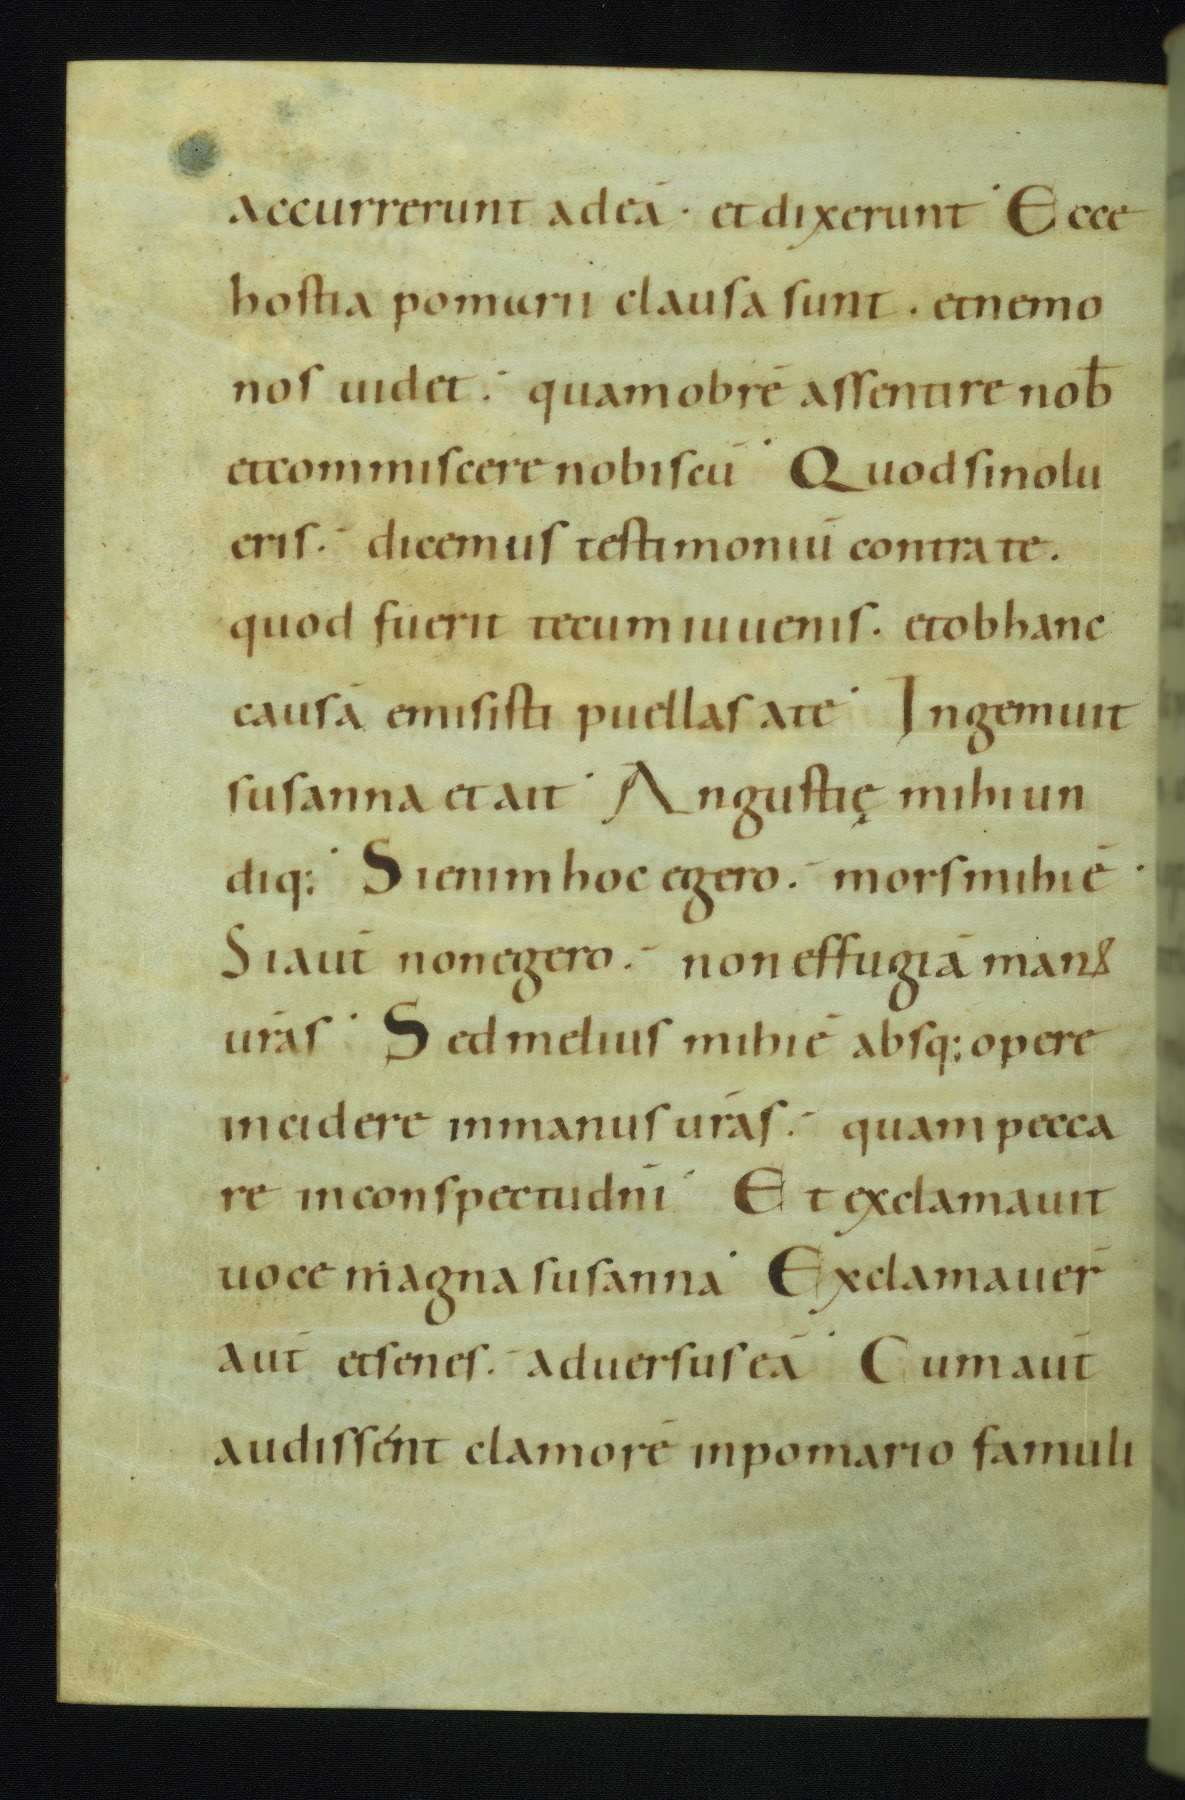 accurrerunt ad eā · et dixerunt · Ecce
hostia pomarii clausa sunt . et nemo
nos uidet .- quamobrē assentire nob̄
et commiscere nobiscū · Quod si nolu
eris .- dicemus testimoniū contra te .
quod fuerit tecum iuuenis . et ob hanc
causā emisisti puellas a te · Ingemuit
susanna et ait · Angustię mihi un
diq; · Si enim hoc egero .- mors mihi ē ·
Si aut̄ non egero .- non effugiā manꝰ
ur̄as · Sed melius mihi ē absq; opere
incidere in manus ur̄as .- quam pecca
re in conspectu dn̄i · Et exclamauit
uoce magna susanna · Exclamauer̄
aut̄ et senes .- aduersus eā · Cum aut̄
audissént clamorē in pomario famuli